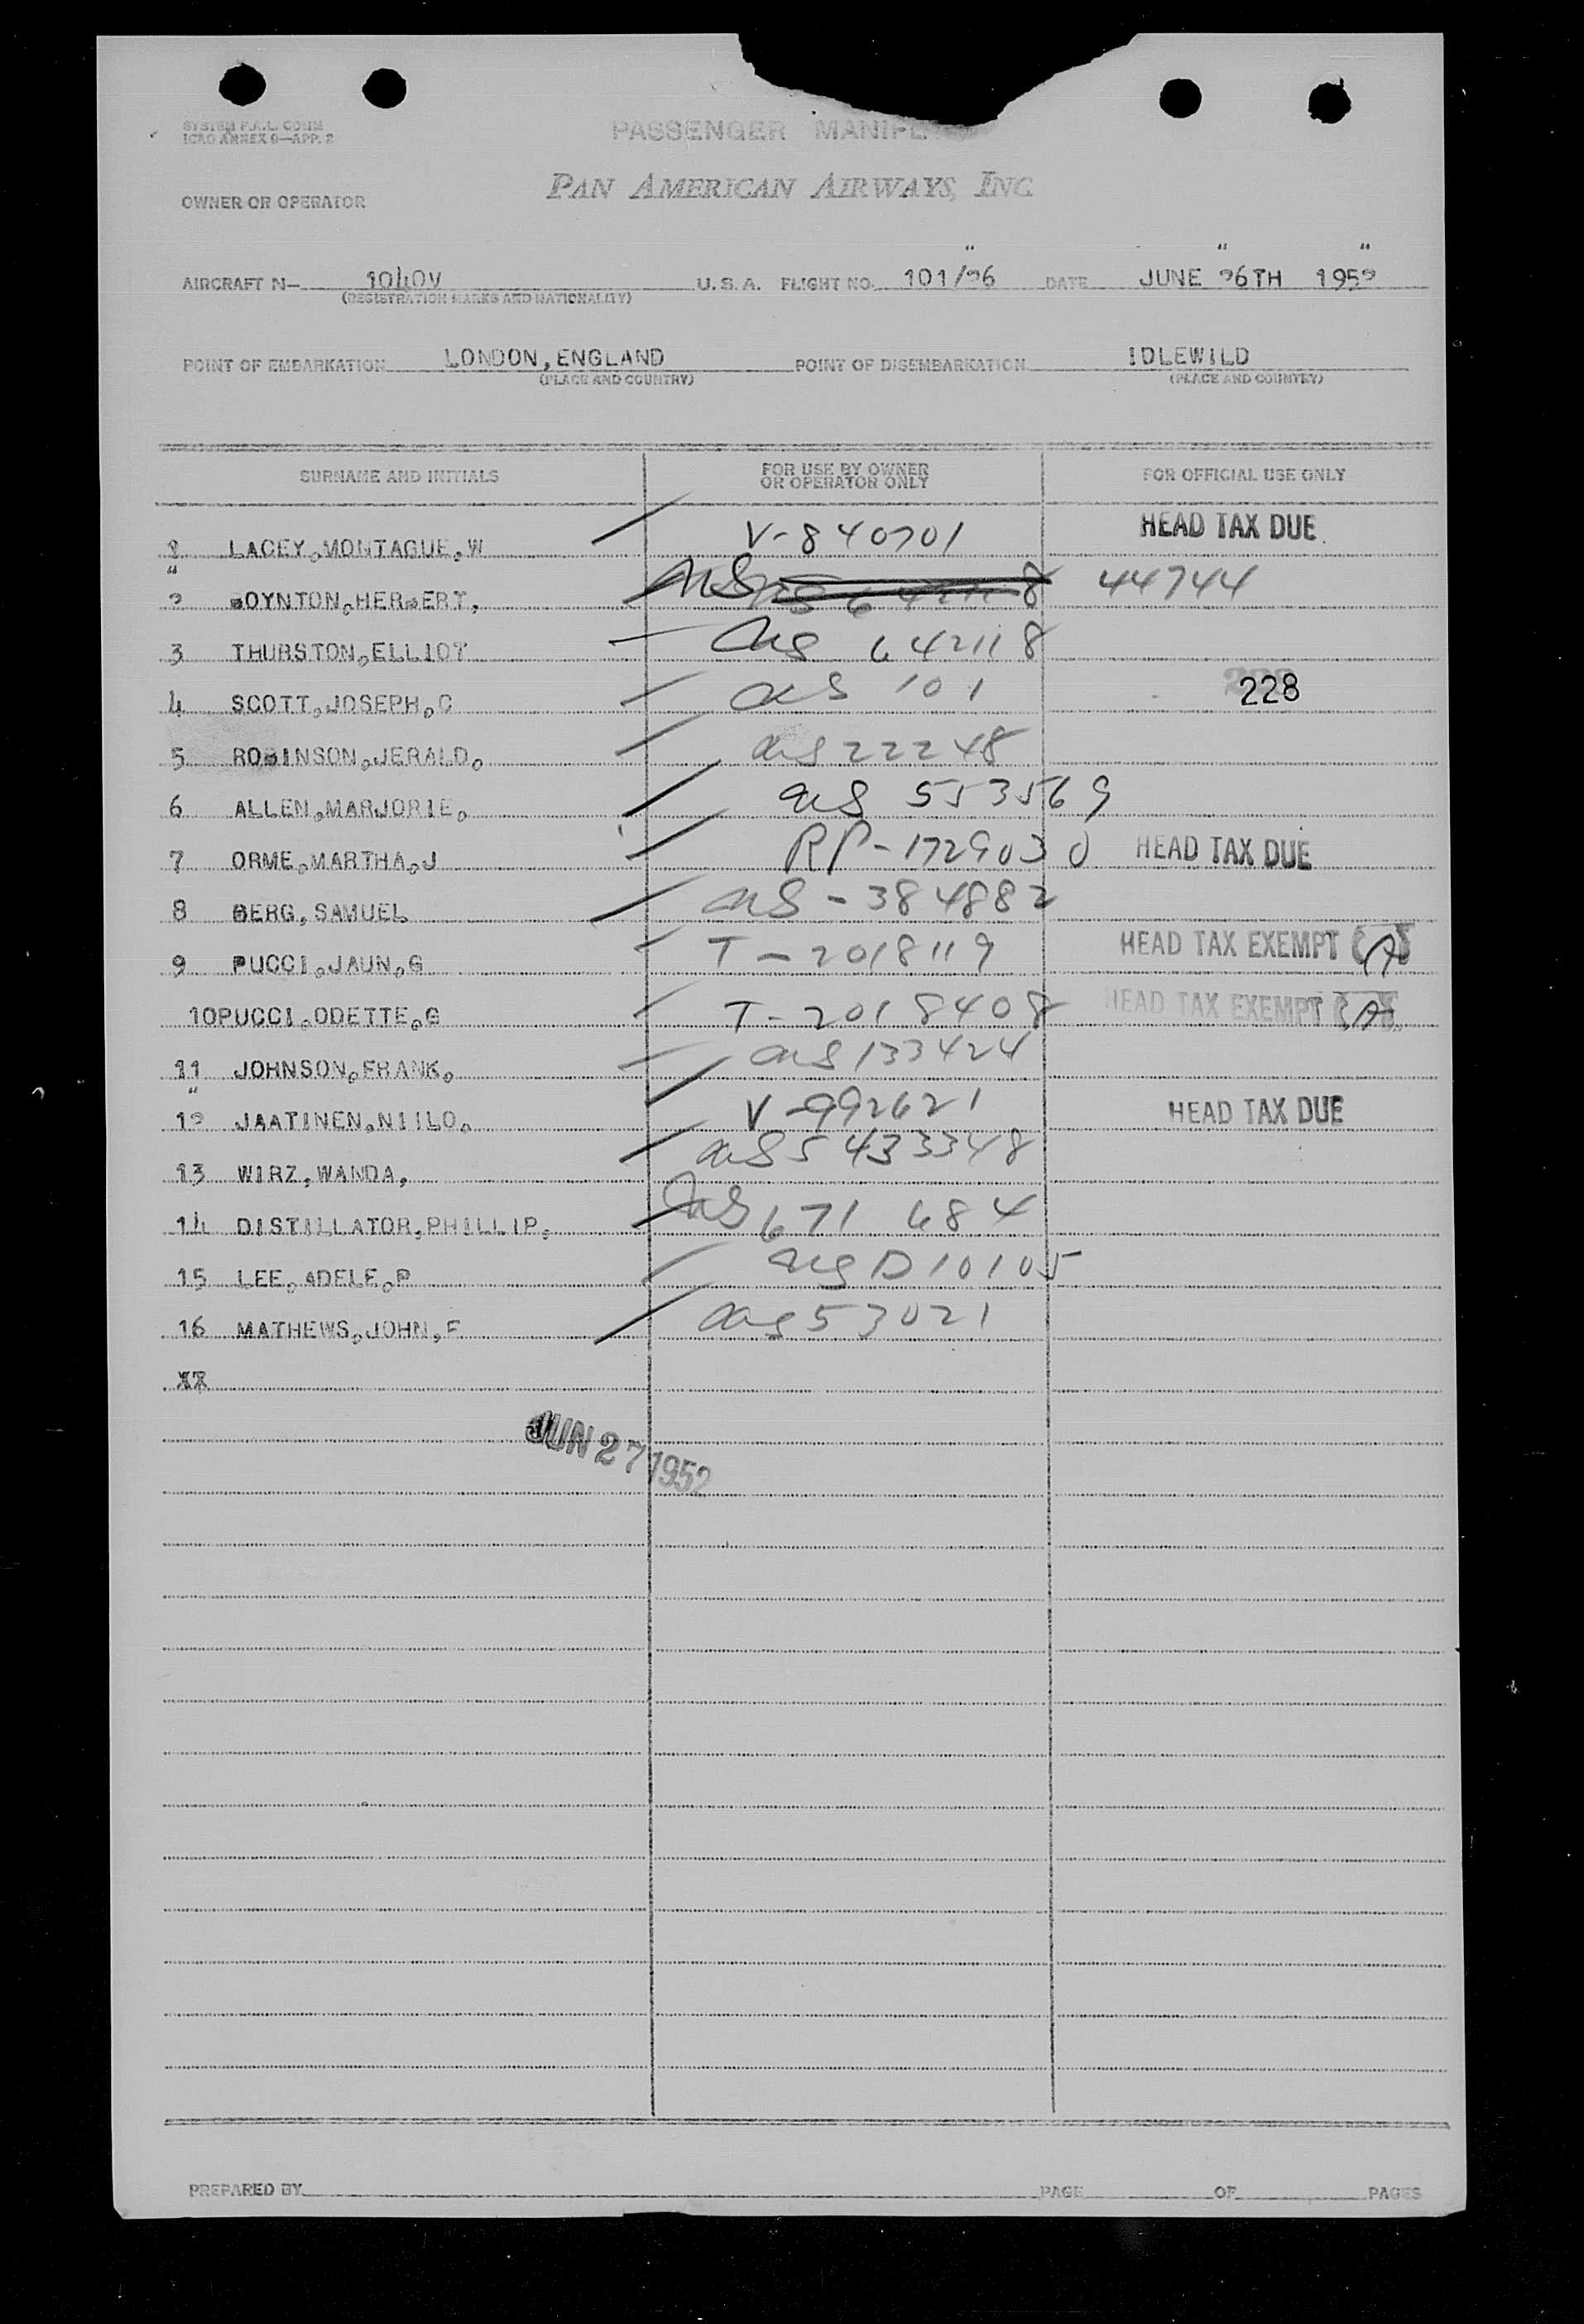 SYSTEM F.A.L. COMM
ICAO ANNEX 9—APP. 2
PASSENGER MANIFE
PAN AMERICAN AIRWAYS, INC.
OWNER OR OPERATOR
AIRCRAFT N— 1040V U. S. A. FLIGHT NO. 101/26 DATE JUNE 26TH 1952
(REGISTRATION MARKS AND NATIONALITY)
POINT OF EMBARKATION LONDON, ENGLAND POINT OF DISEMBARKATION IDLEWILD
(PLACE AND COUNTRY) (PLACE AND COUNTRY)
SURNAME AND INITIALS FOR USE BY OWNER OR OPERATOR ONLY FOR OFFICIAL USE ONLY
1 LACEY,MONTAGUE,W V-840701 HEAD TAX DUE
2 BOYNTON,HERBERT, 44744
3 THURSTON,ELLIOT 642118
4 SCOTT,JOSEPH,C 101 228
5 ROBINSON,JERALD, 22248
6 ALLEN,MARJORIE, 553569
7 ORME,MARTHA,J RP-1729030 HEAD TAX DUE
8 BERG,SAMUEL -384882
9 PUCCI,JAUN,G T-2018119 HEAD TAX EXEMPT
10PUCCI,ODETTE,G T-2018408 HEAD TAX EXEMPT
11 JOHNSON,FRANK, 133424
12 JAATINEN,NIILO, V-992621 HEAD TAX DUE
13 WIRZ,WANDA, 5433348
14 DISTILLATOR,PHILLIP, 671684
15 LEE,ADELE,P D10105
16 MATHEWS,JOHN,F 53021
XX
JUN 27 1952
PREPARED BY PAGE OF PAGES